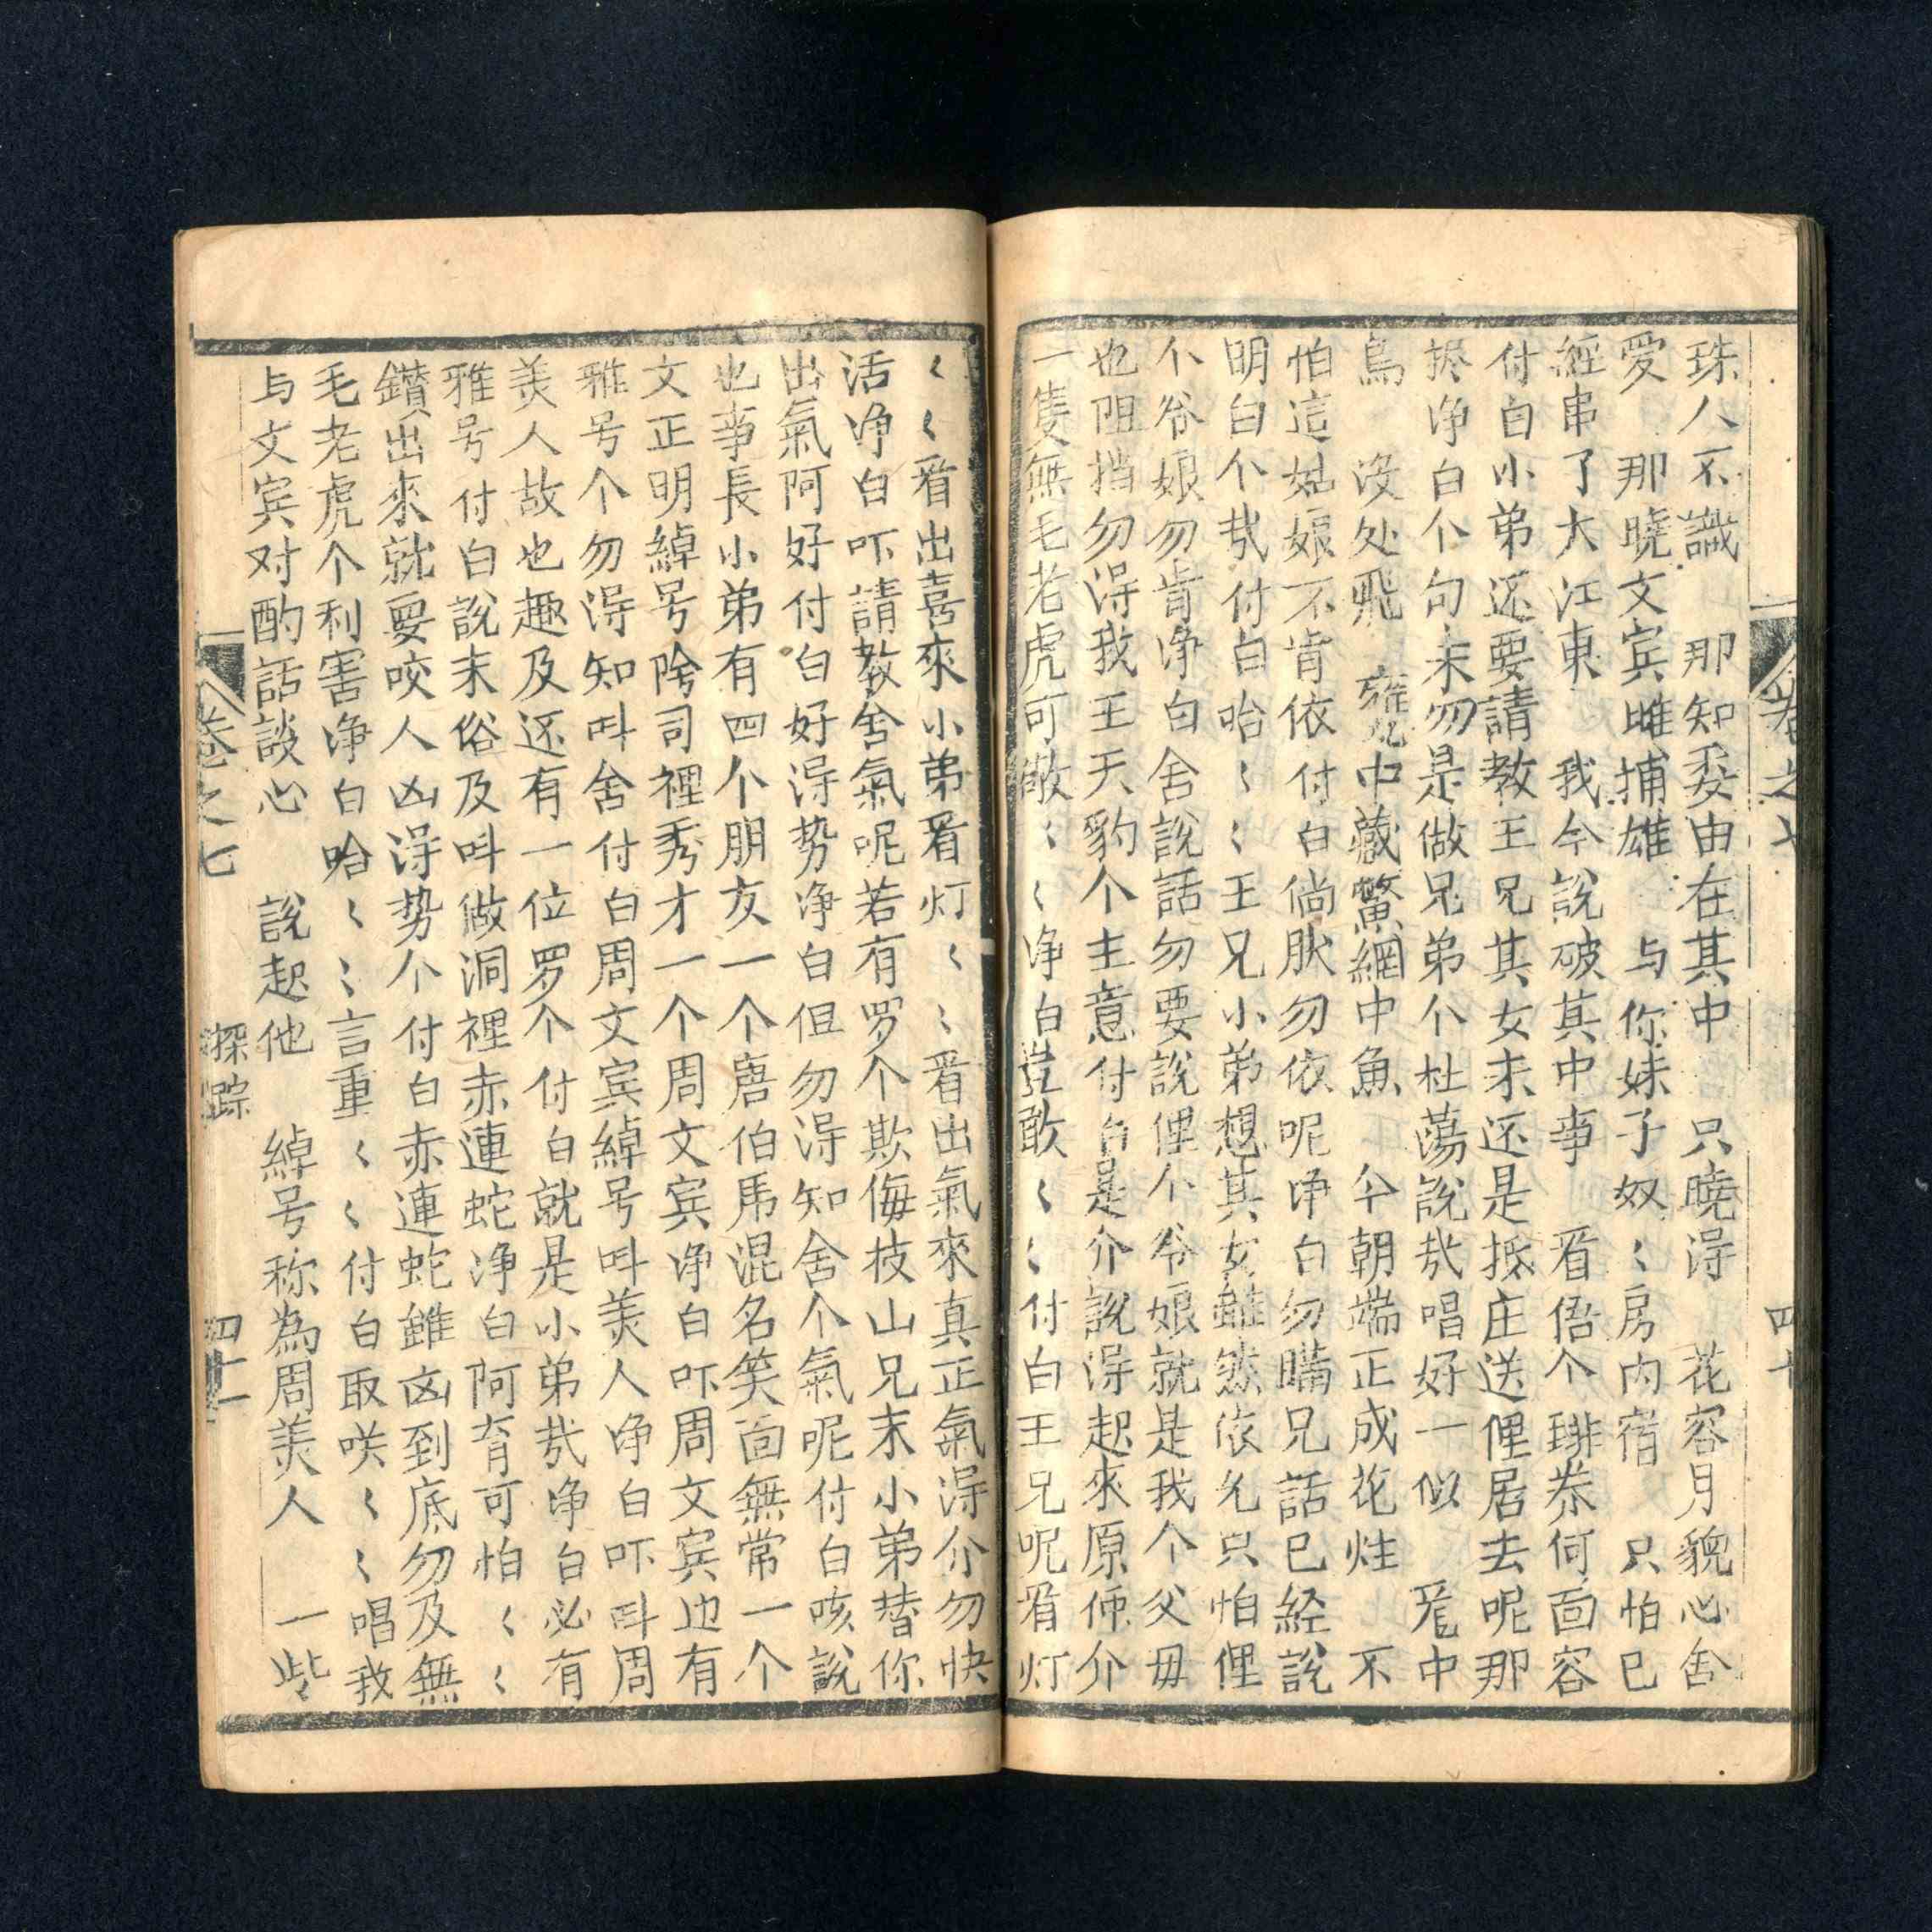 珠人不識　那知委由在其中　只曉淂　花容月貌心舍
愛　那曉文宾雌捕雄　与你妹子奴〻房内宿　只怕已
經串了大江東　我今說破其中亊　看俉个琲恭何面容
付白小弟还要請教王兄其女未还是抵庄送俚居去呢那
挤净白个句末勿是做兄弟个杜蕩說㦲唱好一似　笼中
鳥　没处飛　瓮中藏鱉網中魚　今朝端正成花烛　不
怕這姑娘不肯依付白倘肰勿依呢净白勿瞒兄話已経說
明白个㦲付白哈〻〻王兄小弟想其女雖然依允只怕俚
个爷娘勿肯净白舍說話勿要說俚个爷娘就是我个父毋
也阻挡勿淂我王天豹个主意付白是介說淂起來原伍介
一隻無毛老虎可敬〻〻净白豈敢〻〻付白王兄呢看灯
卷之七　四十
〻〻看出喜來小弟看灯〻〻看出氣來真正氣淂介勿快
活净白吓請教舍氣呢若有罗个欺侮枝山兄末小弟替你
出氣阿好付白好淂势净白但勿淂知舍个氣呢付白咳說
也亊長小弟有四个朋友一个唐伯馬混名笑面無常一个
文正明綽号陰司裡秀才一个周文宾净白吓周文宾也有
雅号个勿淂知呌舍付白周文宾綽号呌羙人净白吓呌周
羙人故也趣及还有一位罗个付白就是小弟㦲净白必有
雅号付白說末俗及呌做洞裡赤連蛇净白阿育可怕〻〻
鑚出來就要咬人凶淂势个付白赤連蛇雖凶到底勿及無
毛老虎个利害净白哈〻〻言重〻〻付白取咲〻〻唱我
与文宾对酌話談心　說起他　綽号称為周羙人　一些
卷之七　探踪　四十一